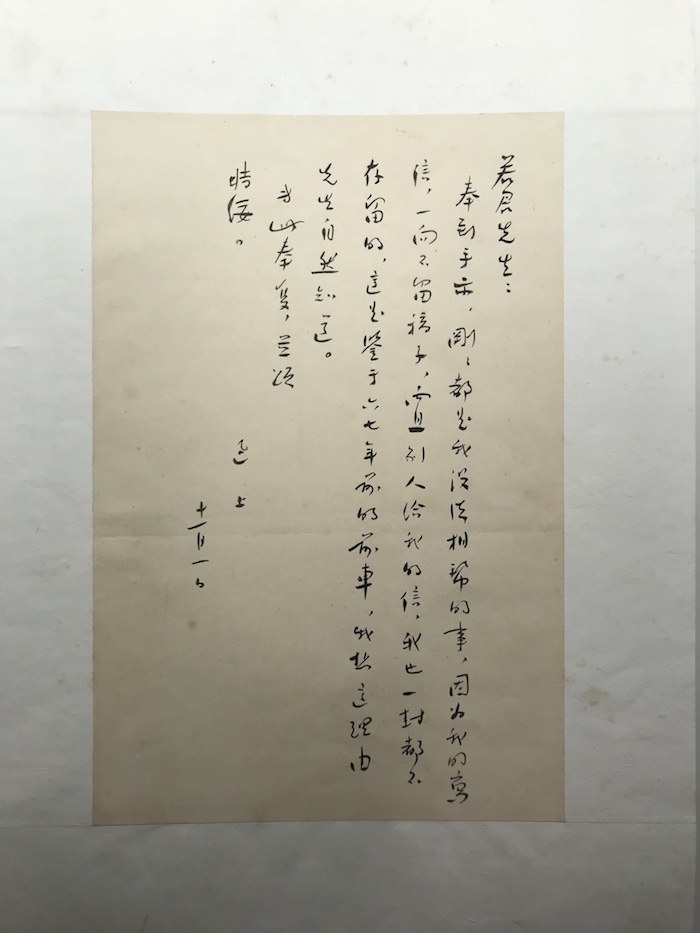 若君先生：
奉到手示，剛剛都是我没法相幫的事，因为我的寫
信，一向不留稿子，而且别人给我的信，我也一封都不
存留的，這是鑒于六七年前的前車，我想這理由
先生自然知道。
専此奉复，并頌
時绥。
迅 上
十一月一日